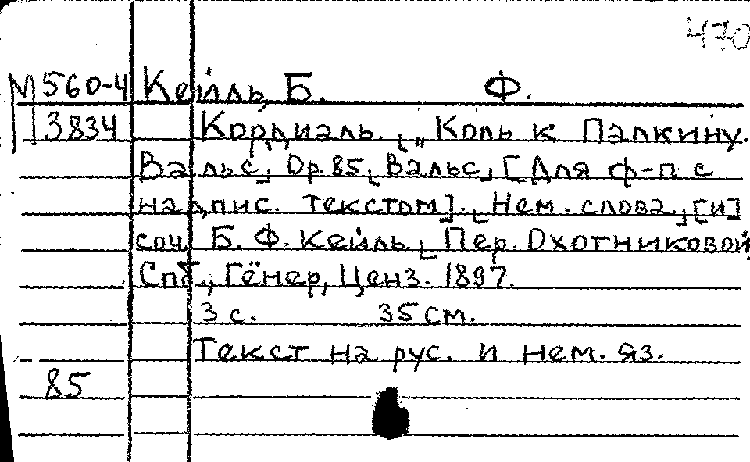 470
М 560-4 Кейль, Б. Ф.
3834 Кордиаль. [„Коль к Палкину.
Вальс] Op. 85, [Вальс] [Для ф-п с
надпис. текстом]. [Нем. слова] [и]
соч. Б. Ф. Кейль [Пер. Охотниковой
Спб., Гёнер, Ценз. 1897.
3 с. 35 см.
Текст на рус. и нем. яз.
85